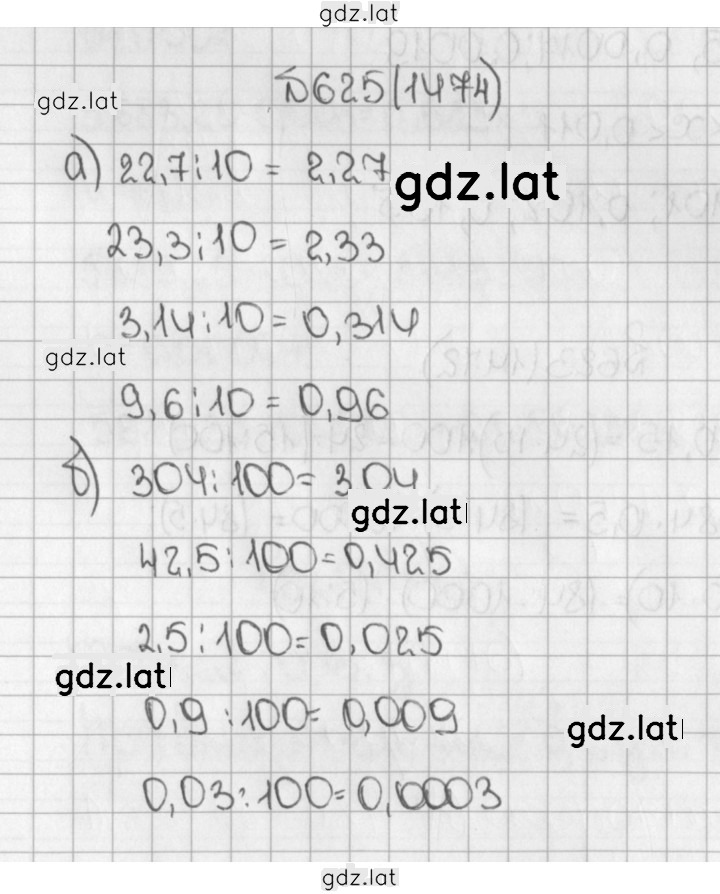 gdz.lat
№625(1474)
gdz.lat
а) 22,7:10 = 2,27
gdz.lat
23,3:10 = 2,33
3,14:10 = 0,314
gdz.lat
9,6:10 = 0,96
б) 304:100 = 3,04
gdz.lat
42,5:100 = 0,425
2,5:100 = 0,025
gdz.lat
0,9:100 = 0,009
gdz.lat
0,03:100 = 0,0003
gdz.lat